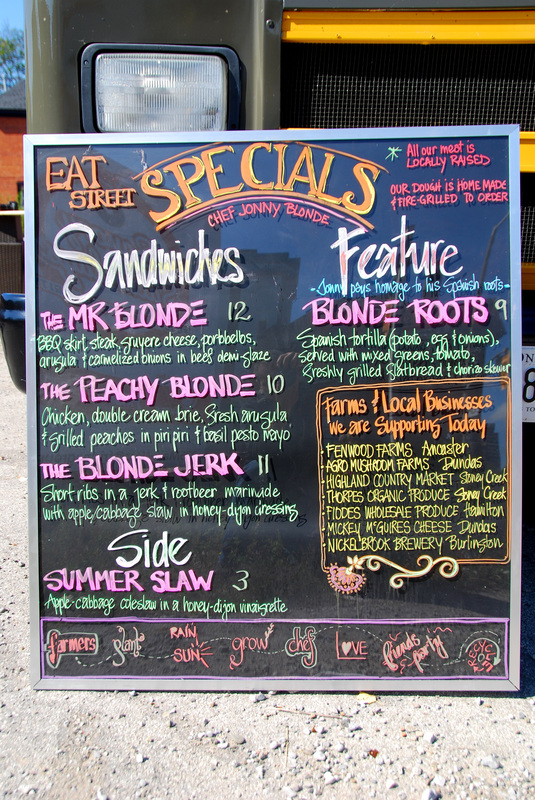 EAT
STREET
SPECIALS
CHEF JONNY BLONDE
All our meat is
LOCALLY RAISED
OUR DOUGH IS HOME MADE
& FIRE-GRILLED TO ORDER
Sandwiches
THE MR BLONDE 12
BBQ skirt steak, gruyere cheese, portobellos,
arugula & carmelized onions in beef demi-glaze
THE PEACHY BLONDE 10
Chicken, double cream brie, fresh arugula
& grilled peaches in piri piri & basil pesto mayo
THE BLONDE JERK 11
Short ribs in a jerk & rootbeer marinade
with apple/cabbage slaw in honey-dijon dressing
Side
SUMMER SLAW 3
Apple-cabbage coleslaw in a honey-dijon vinaigrette
Feature
-Jonny pays homage to his Spanish roots-
BLONDE ROOTS 9
Spanish tortilla (potato, egg & onions),
served with mixed greens, tomato,
freshly grilled flatbread & chorizo skewer
Farms & Local Businesses
we are Supporting Today
FENWOOD FARMS Ancaster
AGRO MUSHROOM FARMS Dundas
HIGHLAND COUNTRY MARKET Stoney Creek
THORPES ORGANIC PRODUCE Stoney Creek
FIDDES WHOLESALE PRODUCE Hamilton
MICKEY McGUIRES CHEESE Dundas
NICKELBROOK BREWERY Burlington
farmers
plant
RAIN
SUN
grow
chef
LOVE
friends
party